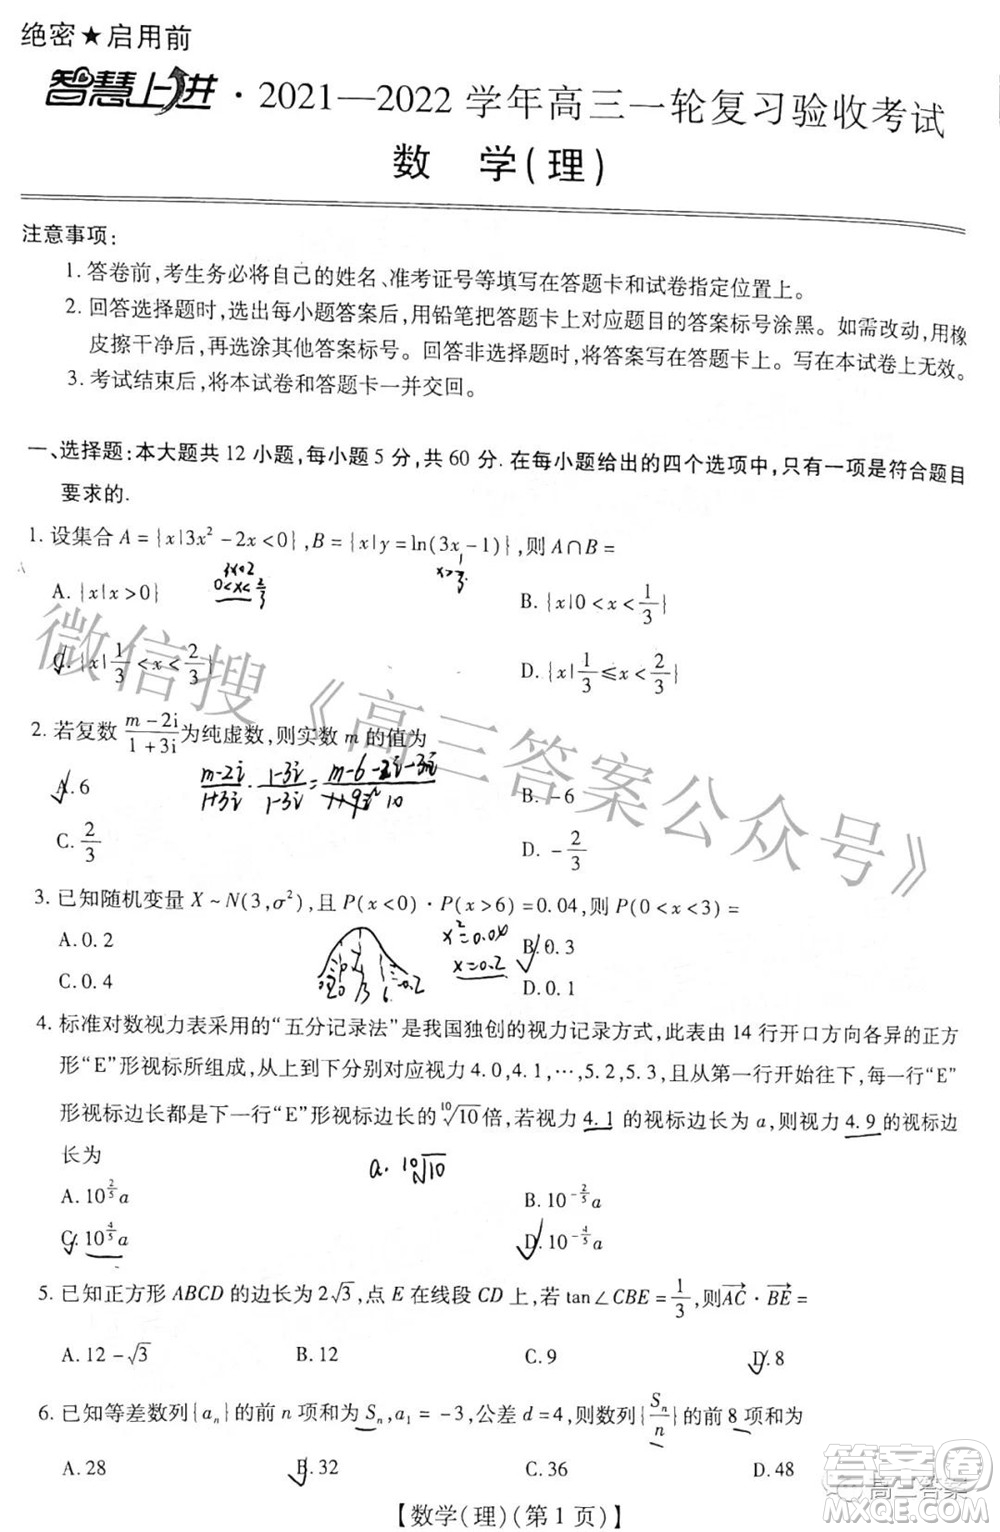 绝密★启用前
智慧上进·2021—2022学年高三一轮复习验收考试
数 学(理)
注意事项:
1. 答卷前,考生务必将自己的姓名、准考证号等填写在答题卡和试卷指定位置上。
2. 回答选择题时,选出每小题答案后,用铅笔把答题卡上对应题目的答案标号涂黑。如需改动,用橡
皮擦干净后,再选涂其他答案标号。回答非选择题时,将答案写在答题卡上。写在本试卷上无效。
3. 考试结束后,将本试卷和答题卡一并交回。
一、选择题:本大题共 12 小题,每小题 5 分,共 60 分. 在每小题给出的四个选项中,只有一项是符合题目
要求的.
1. 设集合 A={x|3x²-2x<0},B={x|y=ln(3x-1)},则 A∩B=
3x=2
0<x<2/3
x>1/3
A. {x|x>0}
B. {x|0<x<1/3}
C. {x|1/3<x<2/3}
D. {x|1/3≤x<2/3}
2. 若复数 (m-2i)/(1+3i) 为纯虚数,则实数 m 的值为
(m-2i)/(1+3i)·(1-3i)/(1-3i)=
A. 6
B. -6
C. 2/3
D. -2/3
3. 已知随机变量 X~N(3,σ²),且 P(x<0)·P(x>6)=0.04,则 P(0<x<3)=
x²=0.04
x=0.2
A. 0.2
B. 0.3
C. 0.4
D. 0.1
4. 标准对数视力表采用的“五分记录法”是我国独创的视力记录方式,此表由 14 行开口方向各异的正方
形“E”形视标所组成,从上到下分别对应视力 4.0,4.1,…,5.2,5.3,且从第一行开始往下,每一行“E”
形视标边长都是下一行“E”形视标边长的 ¹⁰√10 倍,若视力 4.1 的视标边长为 a,则视力 4.9 的视标边
长为
a·¹⁰√10
A. 10^(2/5)a
B. 10^(-2/5)a
C. 10^(4/5)a
D. 10^(-4/5)a
5. 已知正方形 ABCD 的边长为 2√3,点 E 在线段 CD 上,若 tan∠CBE=1/3,则 AC·BE=
A. 12-√3
B. 12
C. 9
D. 8
6. 已知等差数列{aₙ}的前 n 项和为 Sₙ,a₁=-3,公差 d=4,则数列{Sₙ/n}的前 8 项和为
A. 28
B. 32
C. 36
D. 48
【数学(理)(第 1 页)】
微信搜《高三答案公众号》
高三答案
答案圈
MXQE.COM